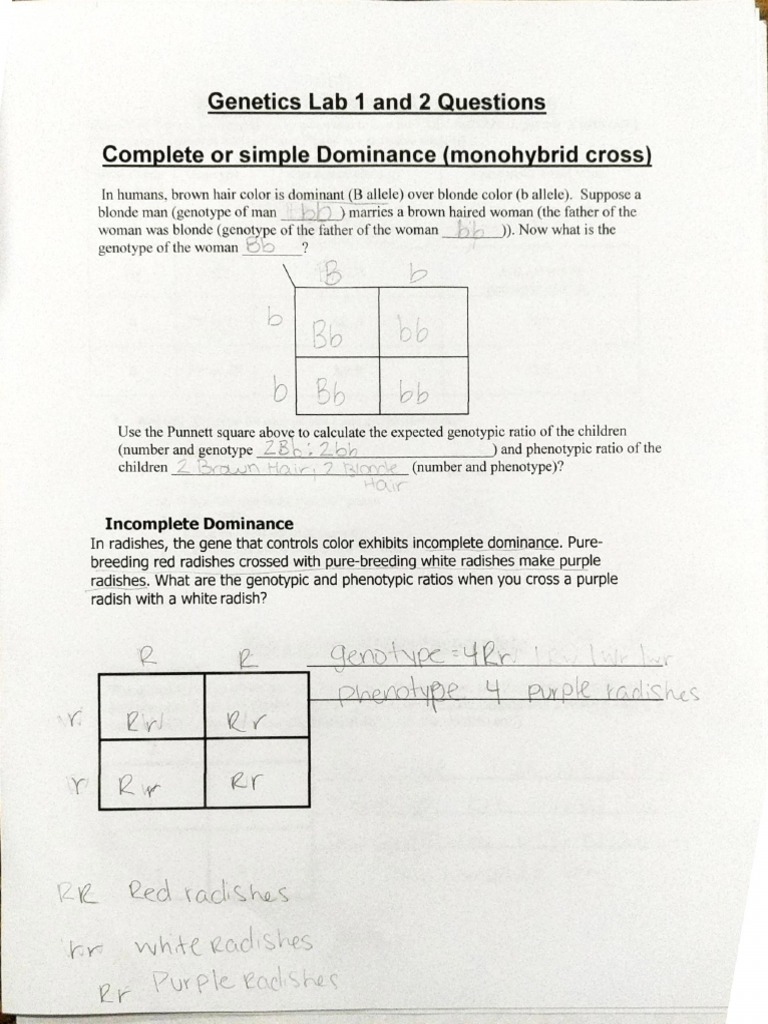 Genetics Lab 1 and 2 Questions
Complete or simple Dominance (monohybrid cross)
In humans, brown hair color is dominant (B allele) over blonde color (b allele). Suppose a
blonde man (genotype of man bb ) marries a brown haired woman (the father of the
woman was blonde (genotype of the father of the woman bb )). Now what is the
genotype of the woman Bb ?
B b
b Bb bb
b Bb bb
Use the Punnett square above to calculate the expected genotypic ratio of the children
(number and genotype 2Bb : 2bb ) and phenotypic ratio of the
children 2 Brown Hair, 2 Blonde (number and phenotype)?
Hair
Incomplete Dominance
In radishes, the gene that controls color exhibits incomplete dominance. Pure-
breeding red radishes crossed with pure-breeding white radishes make purple
radishes. What are the genotypic and phenotypic ratios when you cross a purple
radish with a white radish?
R R genotype = 4Rr
phenotype 4 purple radishes
r Rr Rr
r Rr Rr
RR Red radishes
rr white Radishes
Rr Purple Radishes